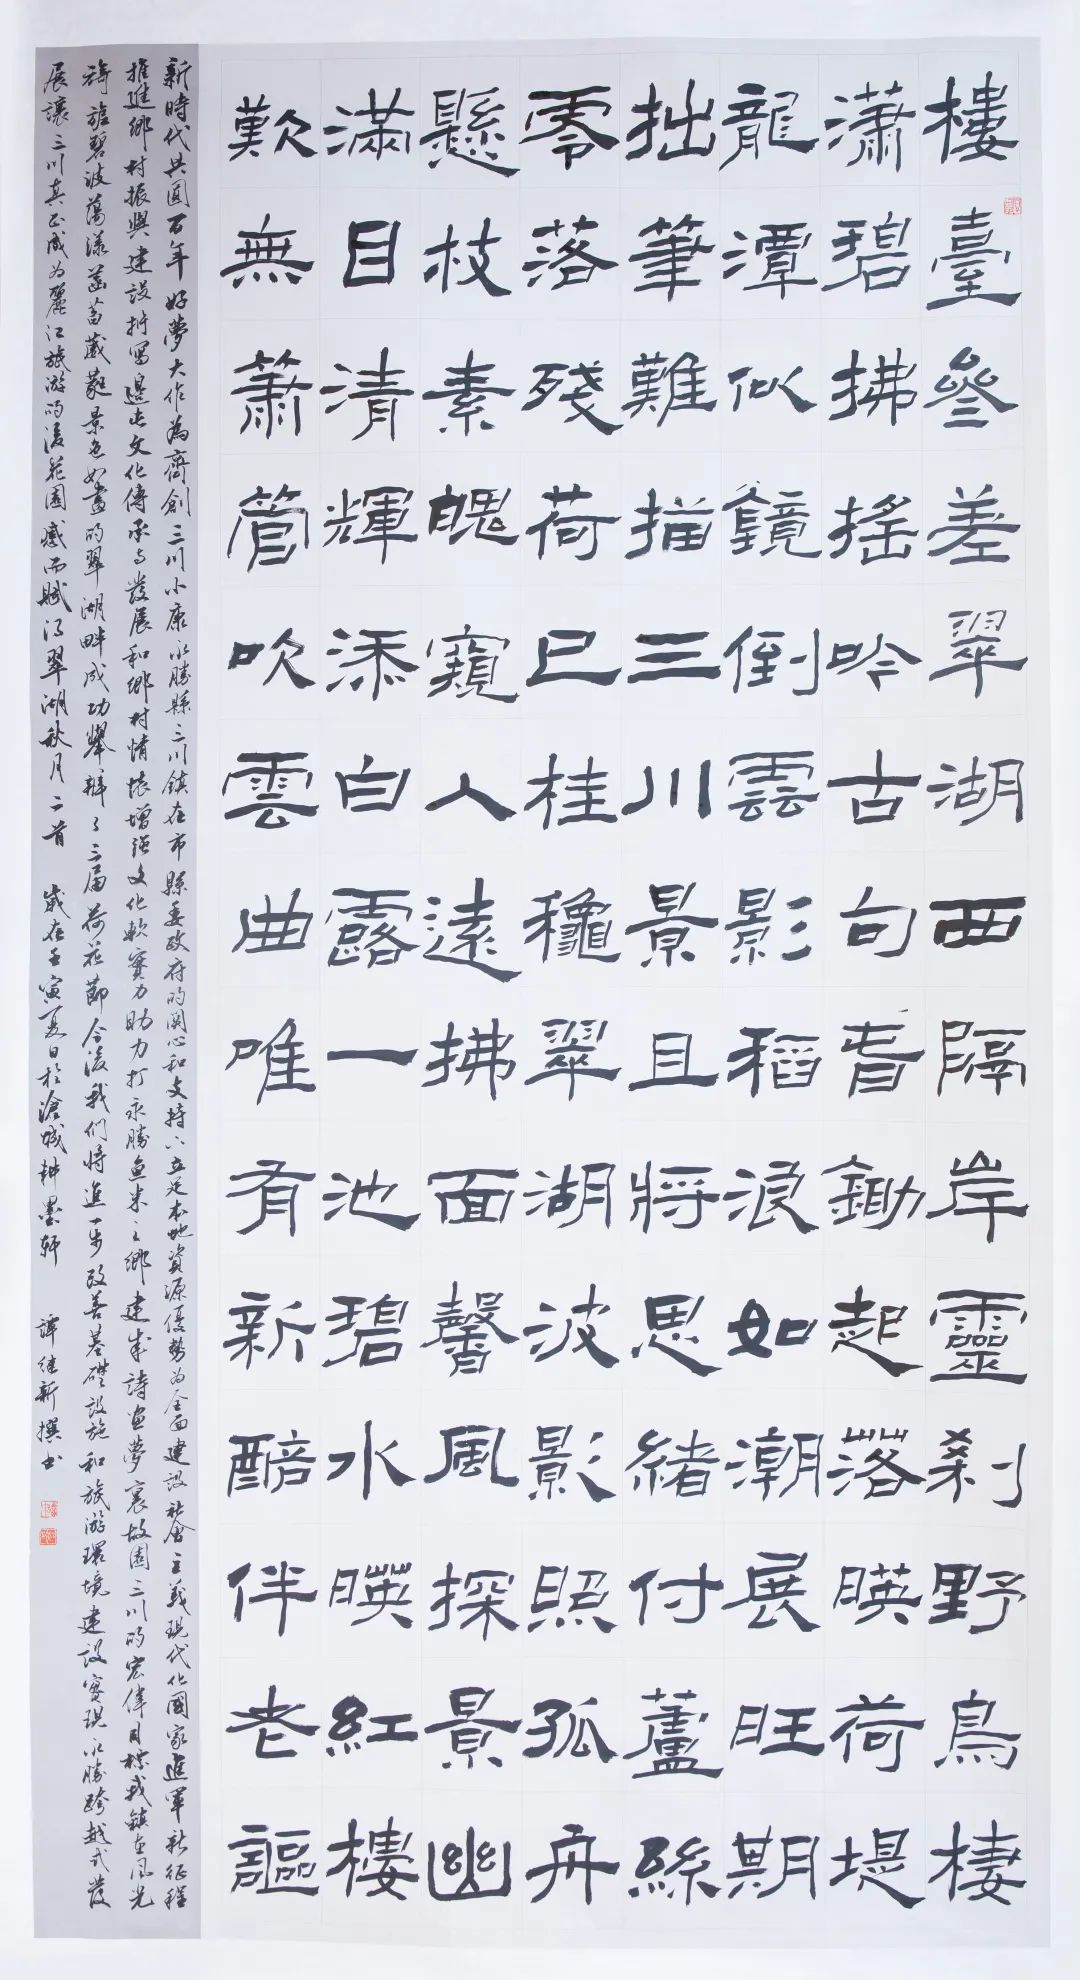 樓臺參差翠湖西隔岸靈刹野鳥棲
瀟碧拂搖吟古句耆鋤起落暎荷堤
龍潭似鏡倒雲影稻浪如潮展旺期
拙筆難描三川景且將思緒付蘆絲
零落殘荷已桂穐翠湖波影照孤舟
懸枝素魄窺人遠拂面馨風探景幽
滿目清輝添白露一池碧水暎紅樓
歎無簫管吹雲曲唯有新醅伴老謳
新時代共圓百年好夢大作為齊創三川小康永勝縣三川鎮在市縣委政府的関心和支持下立足本地資源優勢为全面建設社會主義現代化國家進軍新征程
推進鄉村振興建設抒寫邊屯文化傳承与發展和鄉村情懷增强文化軟實力助力打永勝魚米之鄉建成詩画夢裏故園三川的宏偉目標我鎮在風光
旖旎碧波蕩漾菡萏葳蕤景色如畫的翠湖畔成功舉辦了三届荷花節今後我們將進一步改善基礎設施和旅游環境建設實現永勝跨越式發
展讓三川真正成为麗江旅游的後花園感而賦得翠湖秋月二首 歲在壬寅夏日於滄城耕墨軒 譚继新撰書